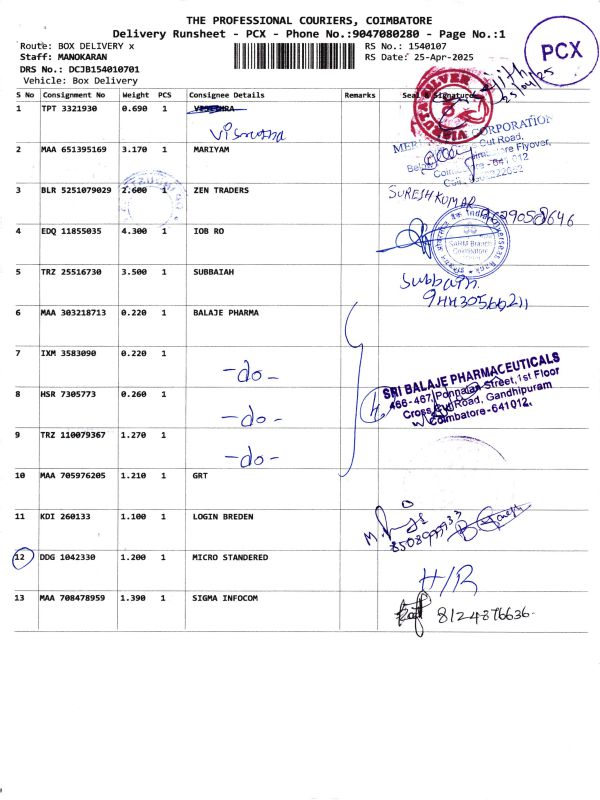 THE PROFESSIONAL COURIERS, COIMBATORE
Delivery Runsheet - PCX - Phone No.:9047080280 - Page No.:1
Route: BOX DELIVERY x RS No.: 1540107
Staff: MANOKARAN RS Date: 25-Apr-2025
DRS No.: DCJB154010701
Vehicle: Box Delivery
PCX
25/04/25
S No Consignment No Weight PCS Consignee Details Remarks Seal & Signature
1 TPT 3321930 0.690 1
SILVER
CORPORATION
Cut Road,
Flyover,
641 012
2 MAA 651395169 3.170 1 MARIYAM
3 BLR 5251079029 2.600 1 ZEN TRADERS SURESH KUMAR
4 EDQ 11855035 4.300 1 IOB RO
SaRM Branch
Coimbatore
5 TRZ 25516730 3.500 1 SUBBAIAH
Subbath.
6 MAA 303218713 0.220 1 BALAJE PHARMA
7 IXM 3583090 0.220 1
-do-
SRI BALAJE PHARMACEUTICALS
466-467, Ponnaian Street, 1st Floor
Cross Cut Road, Gandhipuram
Coimbatore-641012.
8 HSR 7305773 0.260 1
-do-
9 TRZ 110079367 1.270 1
-do-
10 MAA 705976205 1.210 1 GRT
11 KDI 260133 1.100 1 LOGIN BREDEN
12 DDG 1042330 1.200 1 MICRO STANDERED
H/R
13 MAA 708478959 1.390 1 SIGMA INFOCOM
8124876636